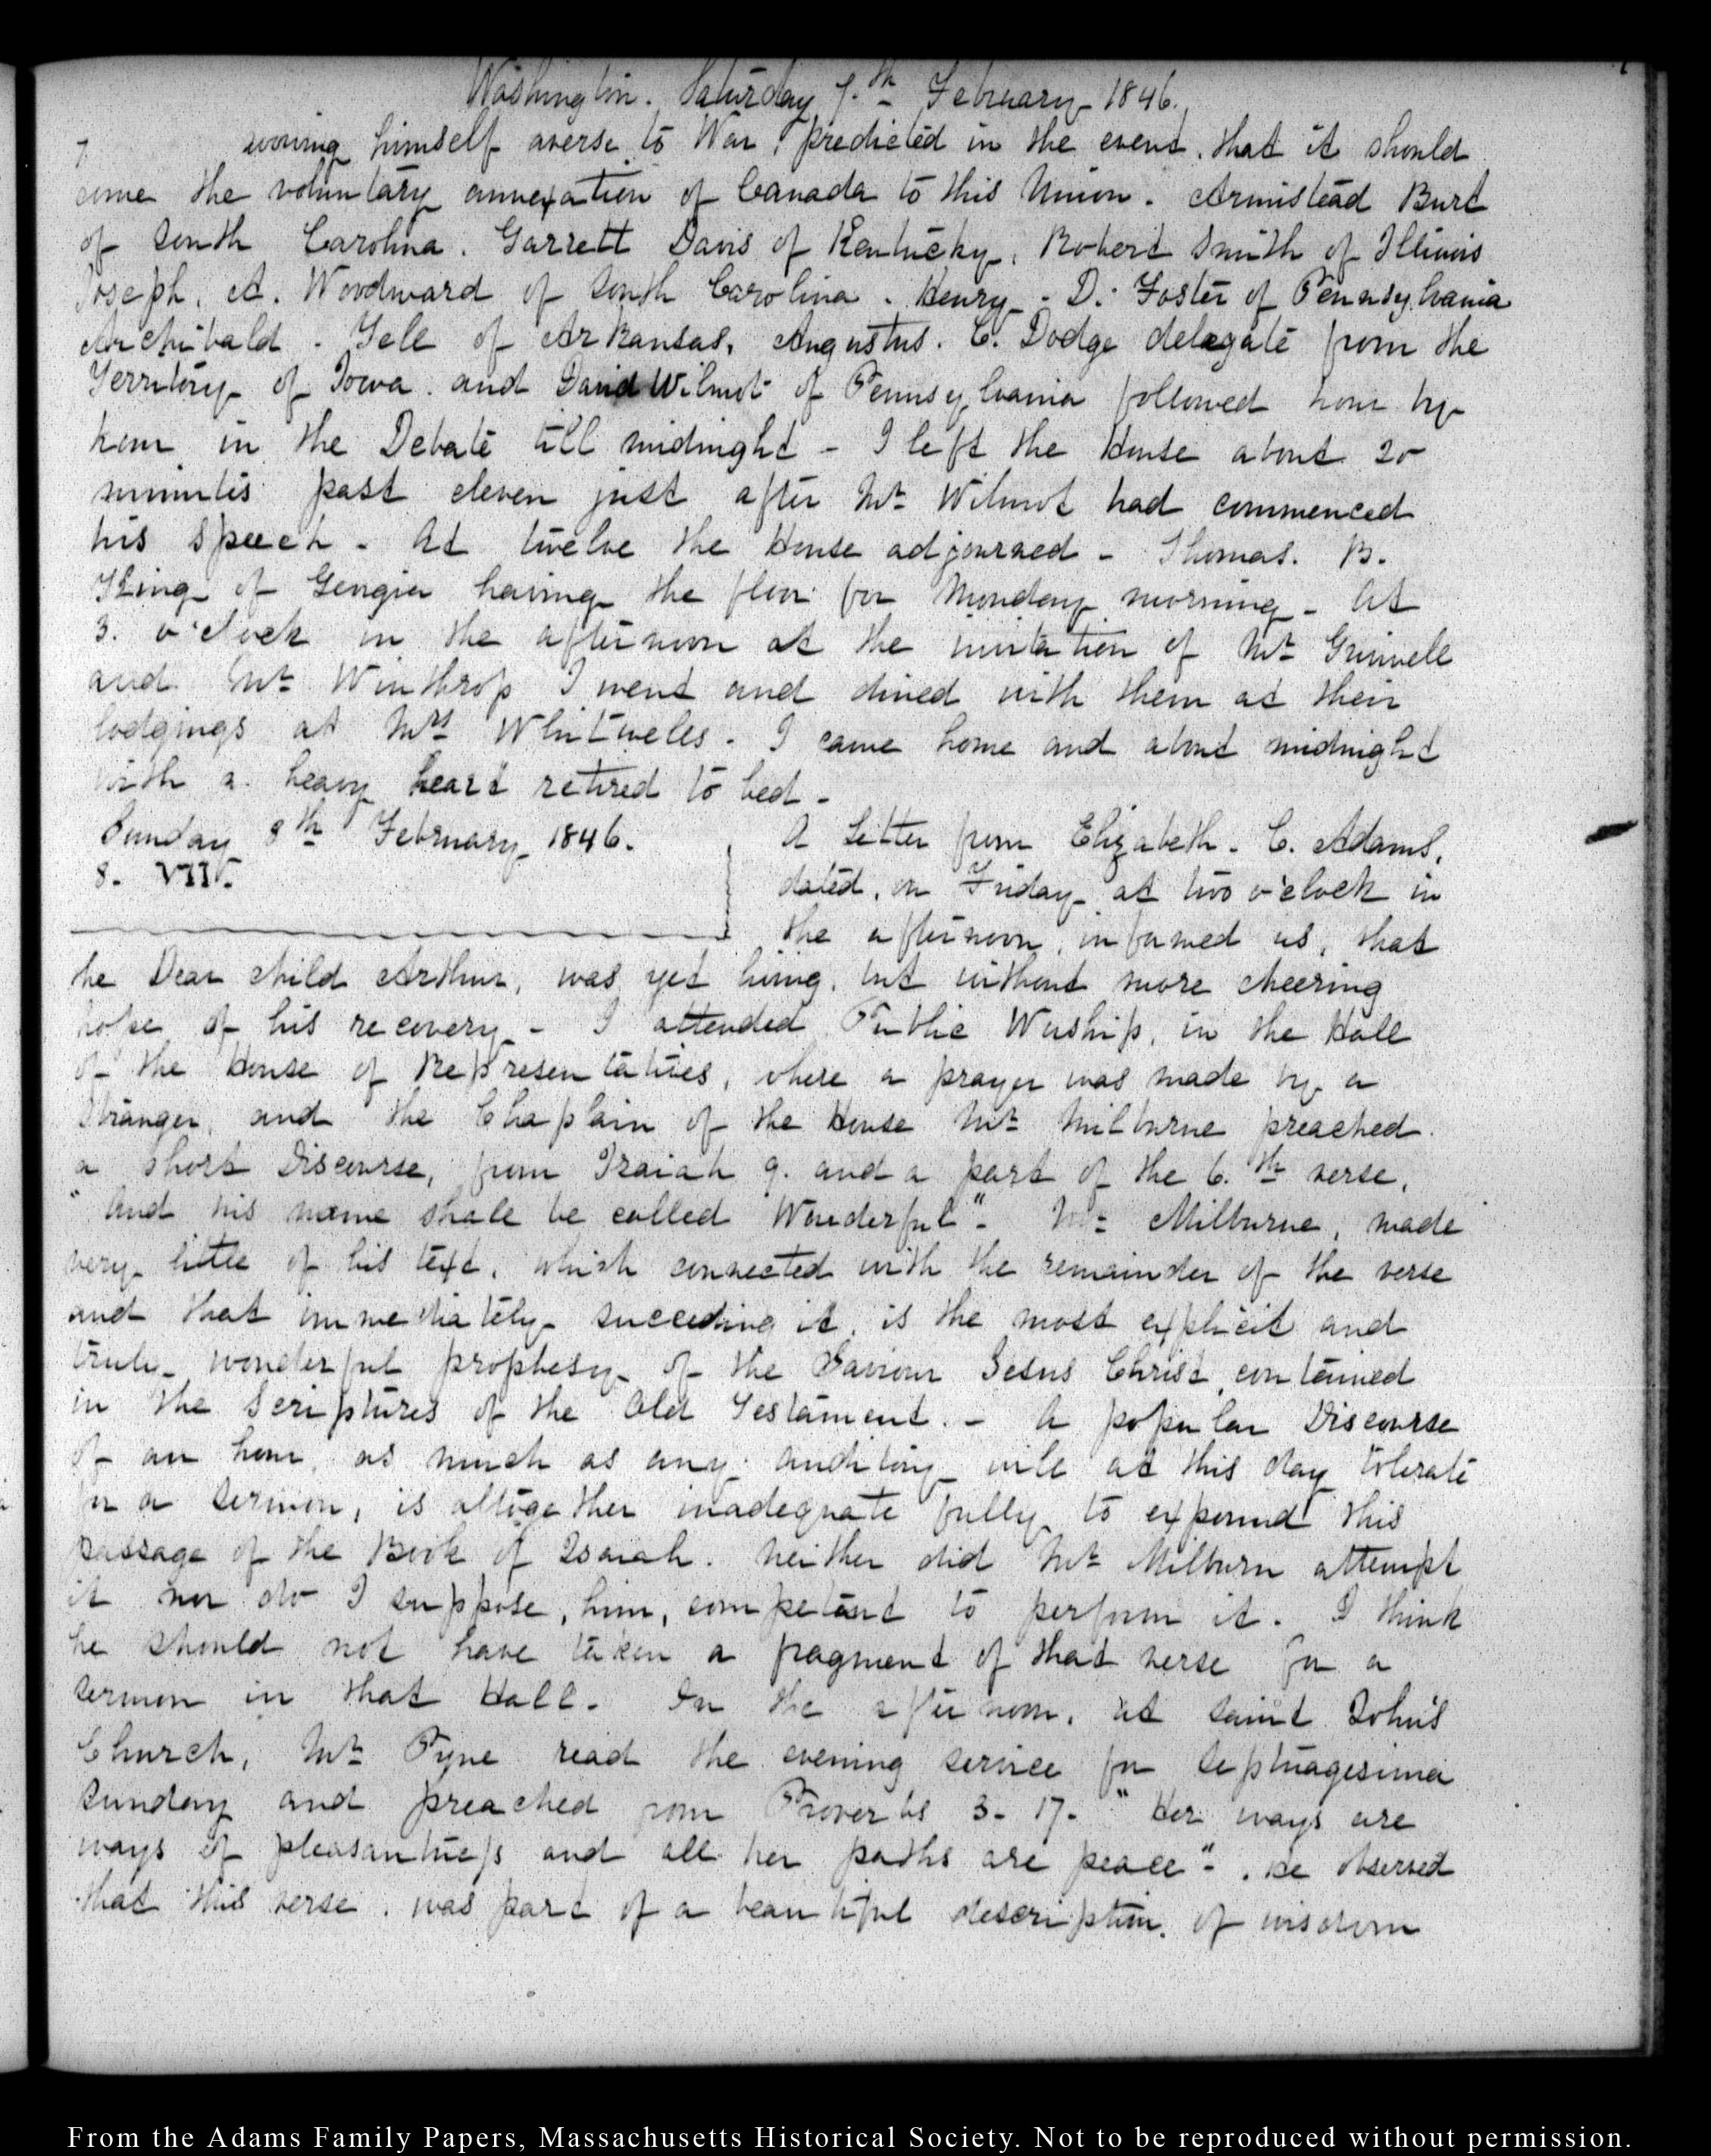 Washington. Saturday 7.th February 1846.
7. avowing himself averse to War, predicted in the event, that it should
come the voluntary annexation of Canada to this Union. Armistead Burt
of South Carolina. Garrett Davis of Kentucky, Robert Smith of Illinois
Joseph. A. Woodward of South Carolina. Henry. D. Foster of Pennsylvania
Archibald. Yell of Arkansas, Augustus. C. Dodge delegate from the
Territory of Iowa. and David Wilmot of Pennsylvania followed hour by
hour in the Debate till midnight – I left the House about 20
minutes past eleven just after Mr. Wilmot had commenced
his speech – At twelve the House adjourned – Thomas. B.
King of Georgia having the floor for Monday morning – At
3. o'clock in the afternoon at the invitation of Mr. Grinnell
and Mr. Winthrop I went and dined with them at their
lodgings at Mrs Whitwells. I came home and about midnight
with a heavy heart retired to bed –
Sunday 8th February 1846.
8. VII.
A Letter from Elizabeth. C. Adams,
dated, on Friday at two o'clock in
the afternoon, informed us, that
the Dear child Arthur, was yet living, but without more cheering
hope of his recovery – I attended Public Worship, in the Hall
of the House of Representatives, where a prayer was made by a
Stranger, and the Chaplain of the House Mr. Milburne preached.
a short Discourse, from Isaiah 9. and a part of the 6.th verse,
"And his name shall be called Wonderful" – Mr. Milburne, made
very little of his text, which connected with the remainder of the verse
and that immediately succeeding it, is the most explicit and
truly wonderful prophesy of the Saviour Jesus Christ, contained
in the Scriptures of the Old Testament. – A popular Discourse
of an hour, as much as any auditory will at this day tolerate
for a sermon, is altogether inadequate fully to expound this
passage of the Book of Isaiah. Neither did Mr. Milburn attempt
it nor do I suppose, him, competent to perform it. I think
he should not have taken a fragment of that verse for a
sermon in that Hall. In the afternoon, at Saint John's
Church, Mr. Pyne read the evening service for Septuagesima
Sunday and preached from Proverbs 3. 17. "Her ways are
ways of pleasantness and all her paths are peace" – . he observed
that this verse, was part of a beautiful description of wisdom
From the Adams Family Papers, Massachusetts Historical Society. Not to be reproduced without permission.